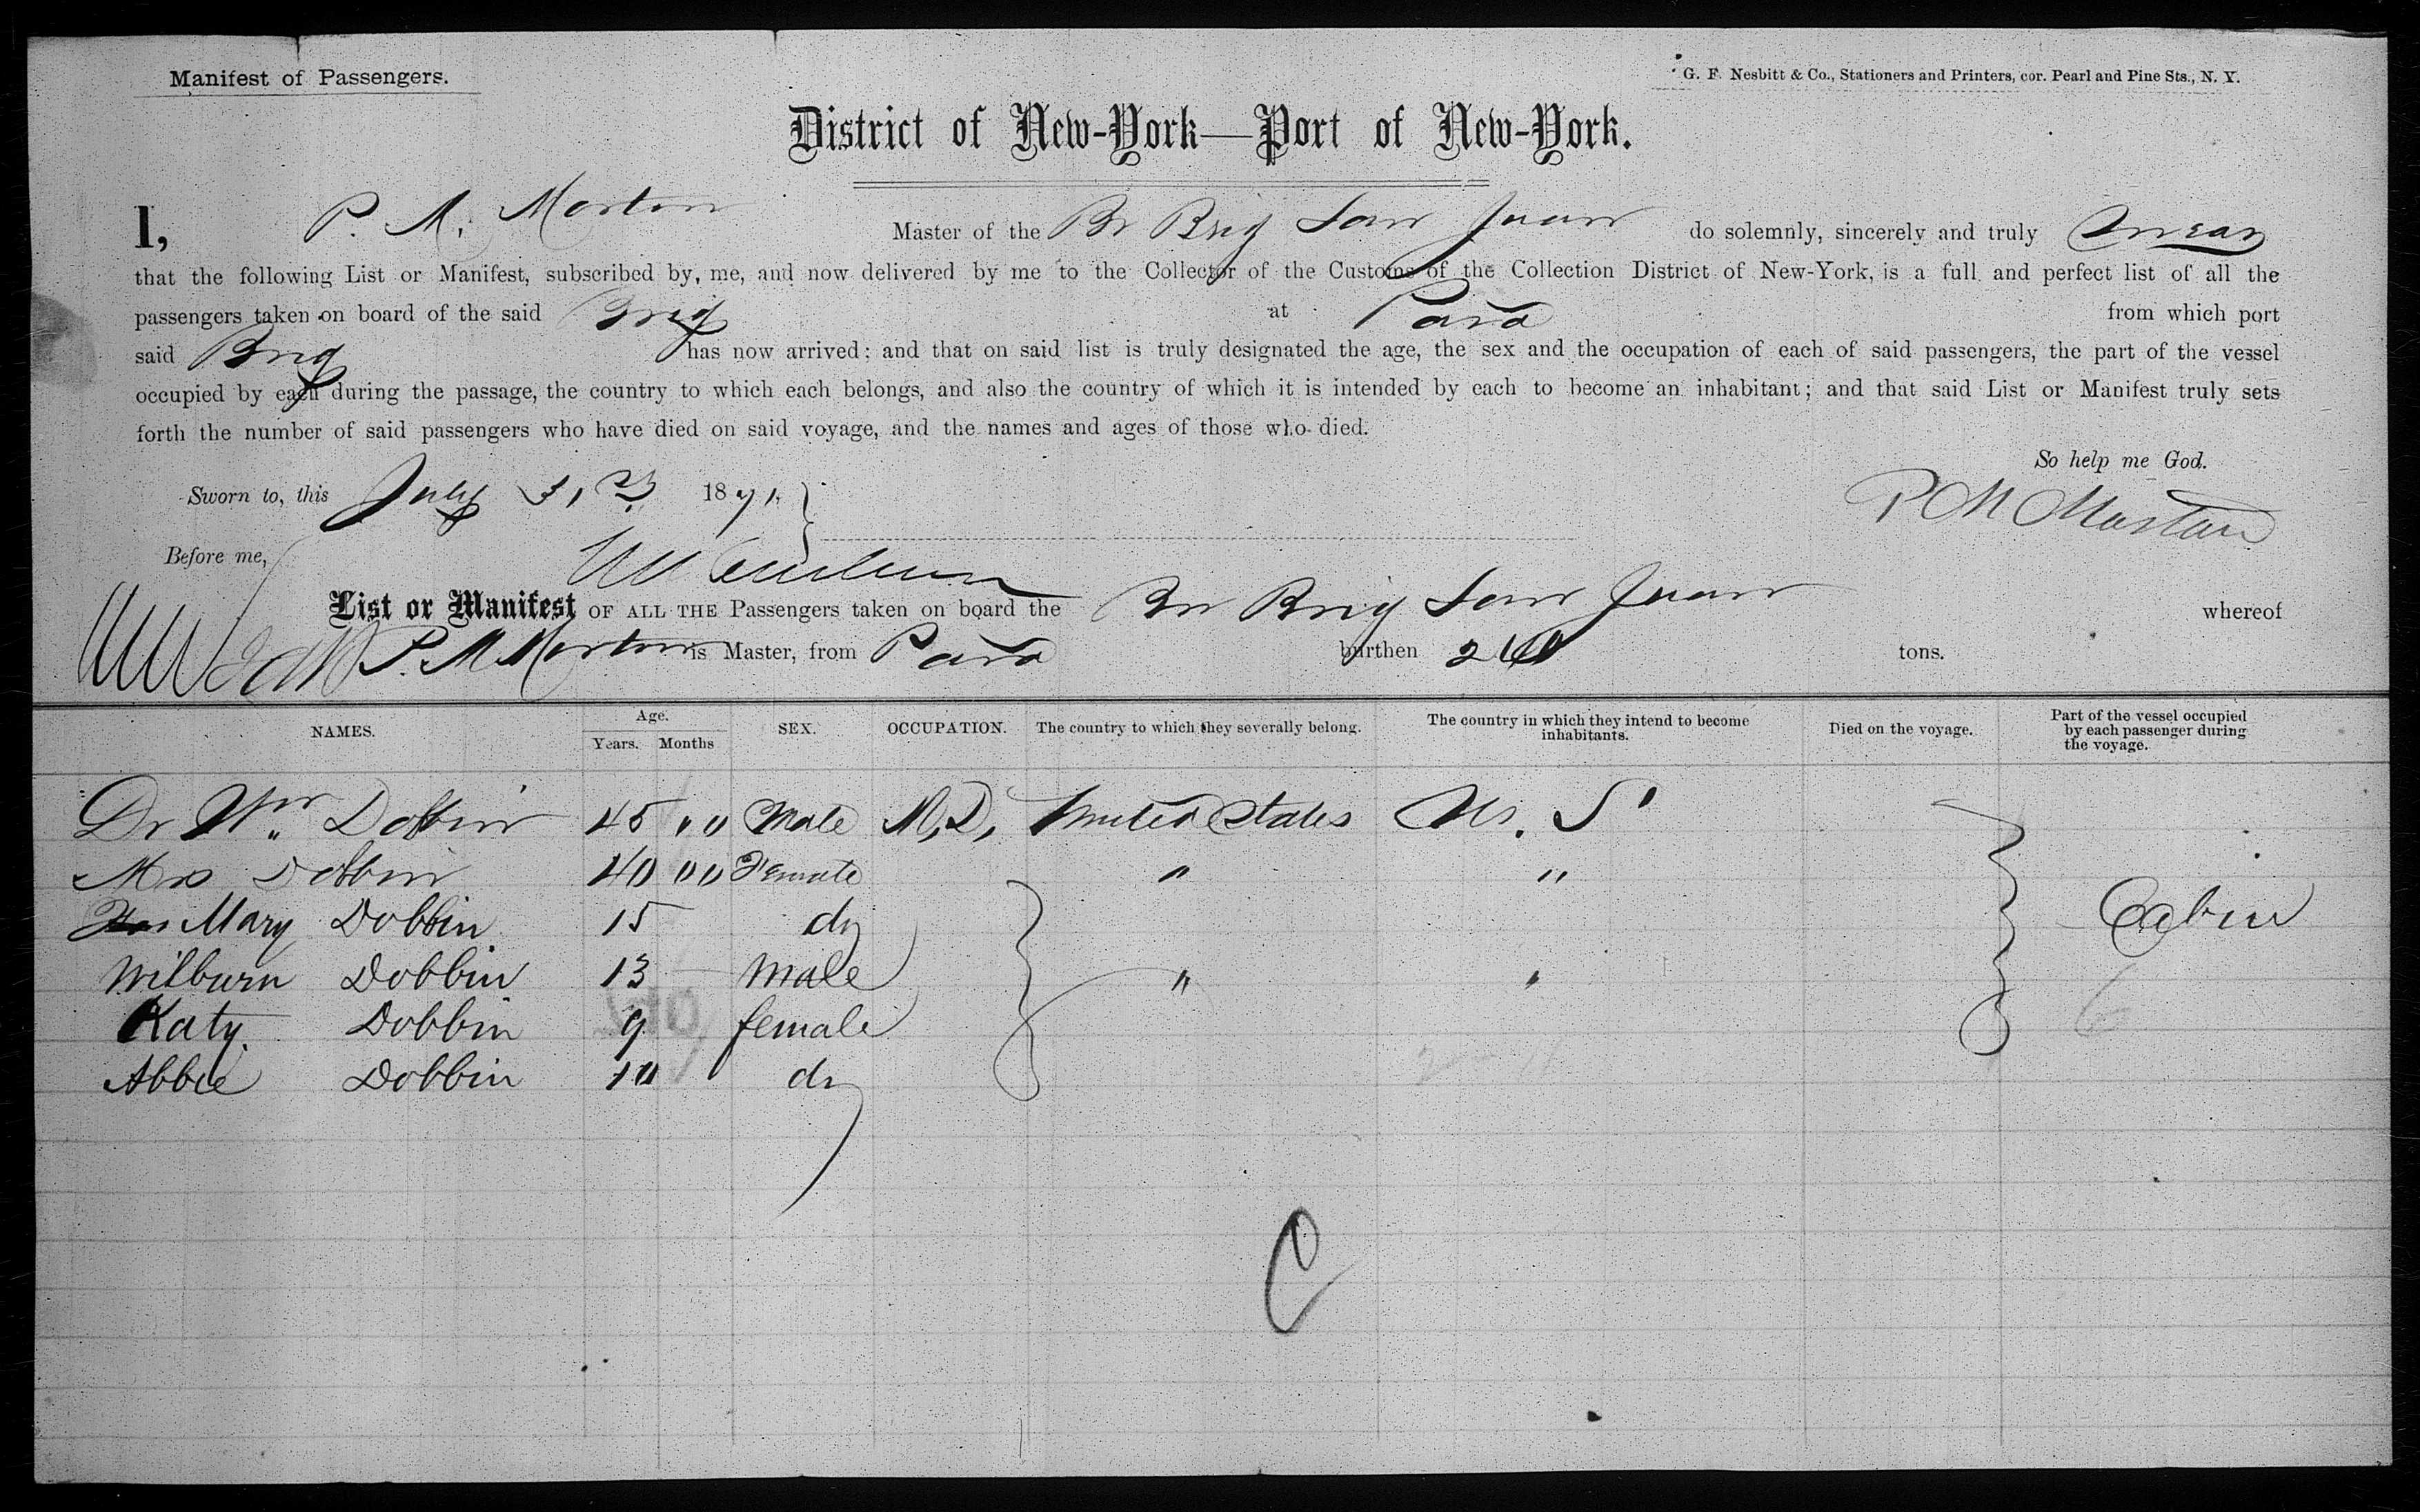 Manifest of Passengers.
G. F. Nesbitt & Co., Stationers and Printers, cor. Pearl and Pine Sts., N. Y.
District of New-York—Port of New-York.
I, P. M. Morton Master of the Br Brig San Juan do solemnly, sincerely and truly Swear
that the following List or Manifest, subscribed by me, and now delivered by me to the Collector of the Customs of the Collection District of New-York, is a full and perfect list of all the
passengers taken on board of the said Brig at Para from which port
said Brig has now arrived; and that on said list is truly designated the age, the sex and the occupation of each of said passengers, the part of the vessel
occupied by each during the passage, the country to which each belongs, and also the country of which it is intended by each to become an inhabitant; and that said List or Manifest truly sets
forth the number of said passengers who have died on said voyage, and the names and ages of those who died.
So help me God.
Sworn to, this July 31st 1871.
P M Morton
Before me,
List or Manifest OF ALL THE Passengers taken on board the Br Brig San Juan whereof
P. M Morton is Master, from Para burthen tons.
NAMES. Age. Years. Months SEX. OCCUPATION. The country to which they severally belong. The country in which they intend to become inhabitants. Died on the voyage. Part of the vessel occupied by each passenger during the voyage.
Dr Wm. Dobbin 45 00 Male M.D. United States U. S
Mrs Dobbin 40 00 Female " "
Mary Dobbin 15 do Cabin
Wilburn Dobbin 13 — male " "
Katy. Dobbin 9 female 6
Abbie Dobbin 10 do
C